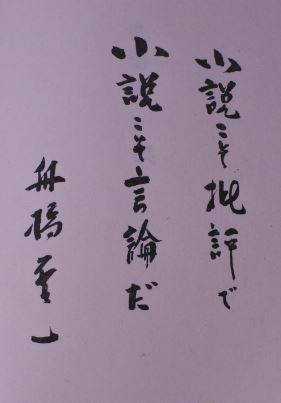 小説こそ批評で
小説こそ言論だ
舟橋聖一